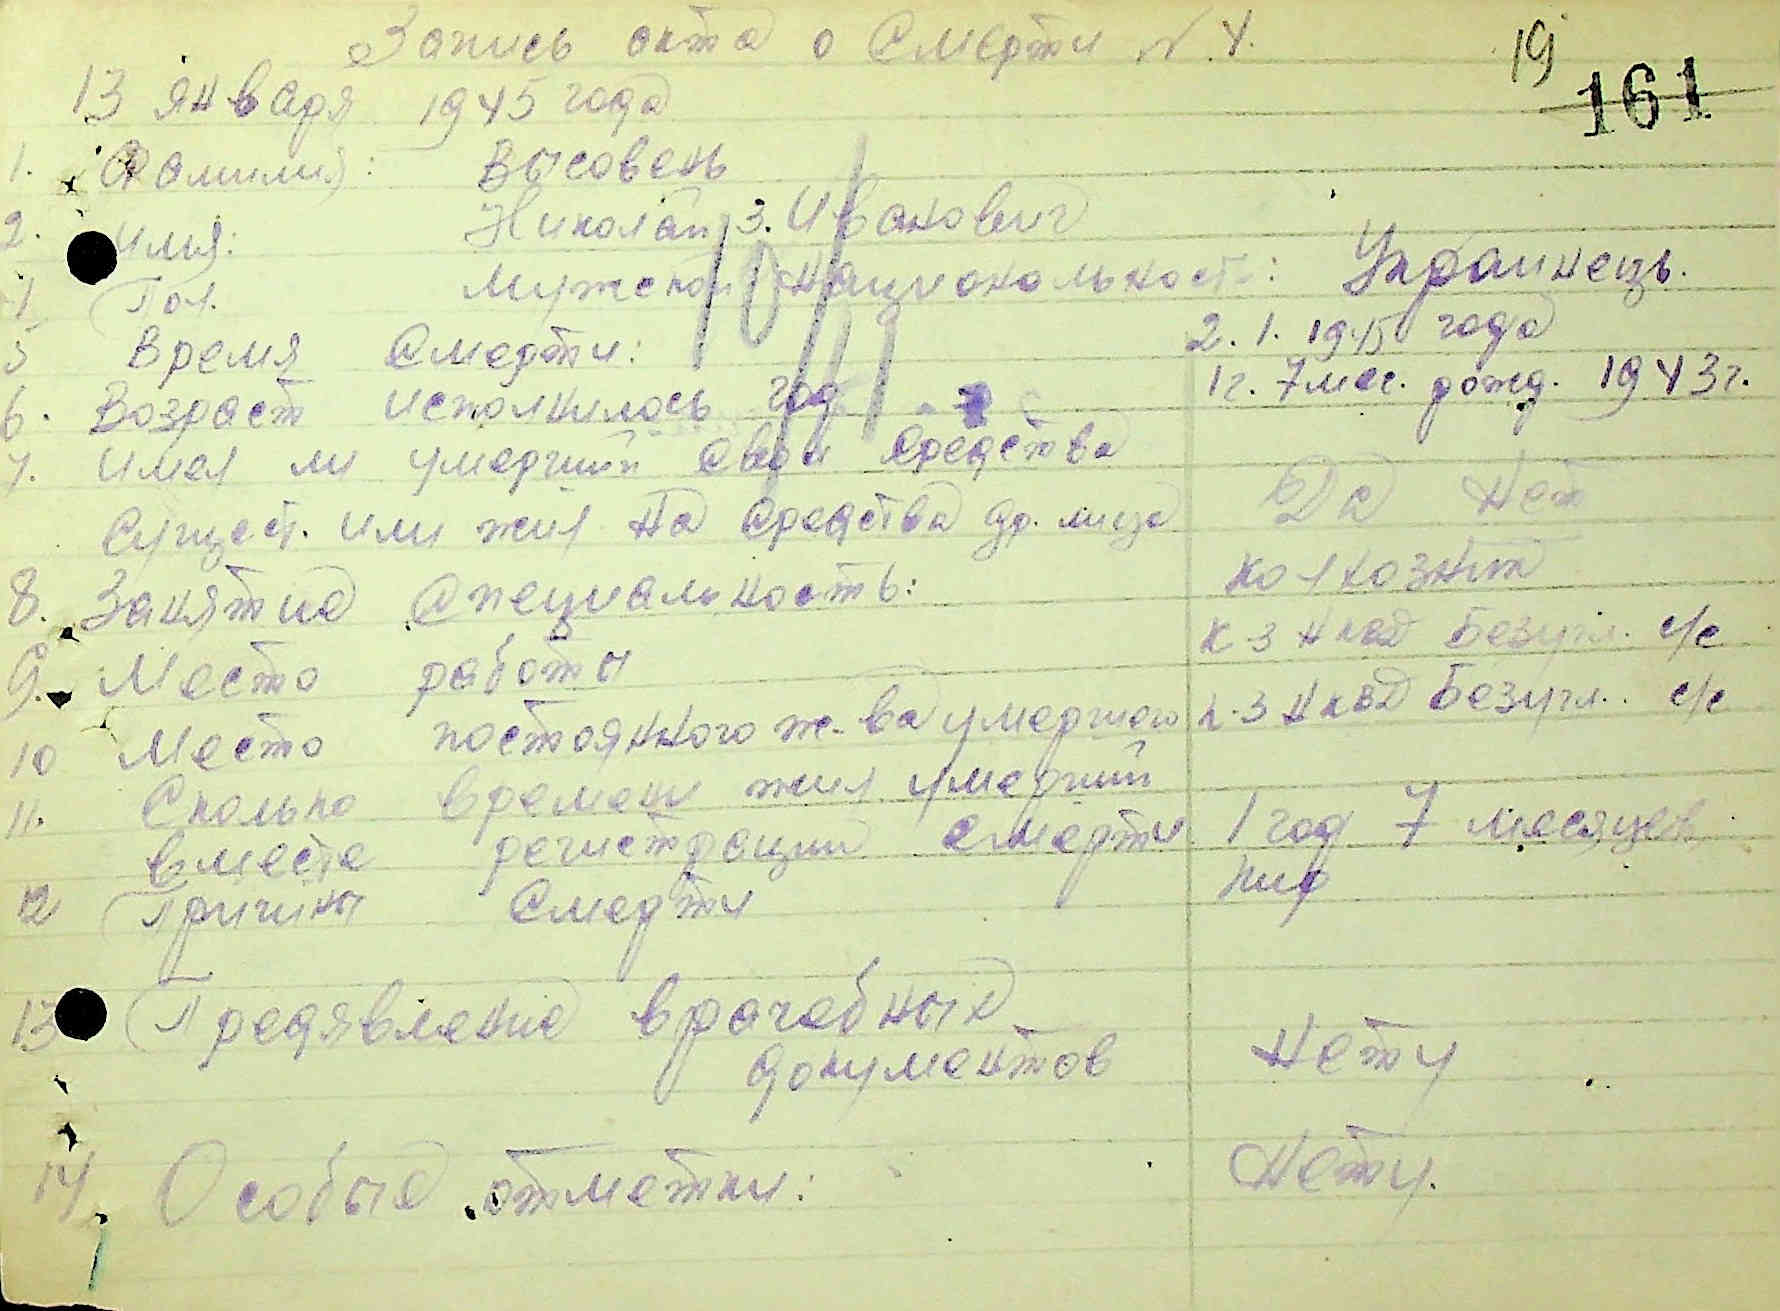 Запись акта о Смерти N. 4.
19
161
13 января 1945 года
1. Фамилия: Высовень
2. имя: Николай 3. Иванович
4 Пол. мужской национальность: Украинець.
5 Время Смерти: 2. 1. 1945 года
6. Возраст исполнилось год 1 г. 7 мес. рожд. 1943 г.
7. имел ли умерший свои средства
Сущест. или жил на средства др. лица Да Нет
8. Занятие Специальность: колхозник
9. Место работы к-з Нквд Безугл. с/с
10 Место постоянного ж-ва умершего к-з Нквд Безугл. с/с
11. Сколько времени жил умерший
вместе регистрации смерти 1 год 7 месяцев
12 Причины Смерти
13 Предявление врачебных
документов Нету
14 Особые отметки: Нету.